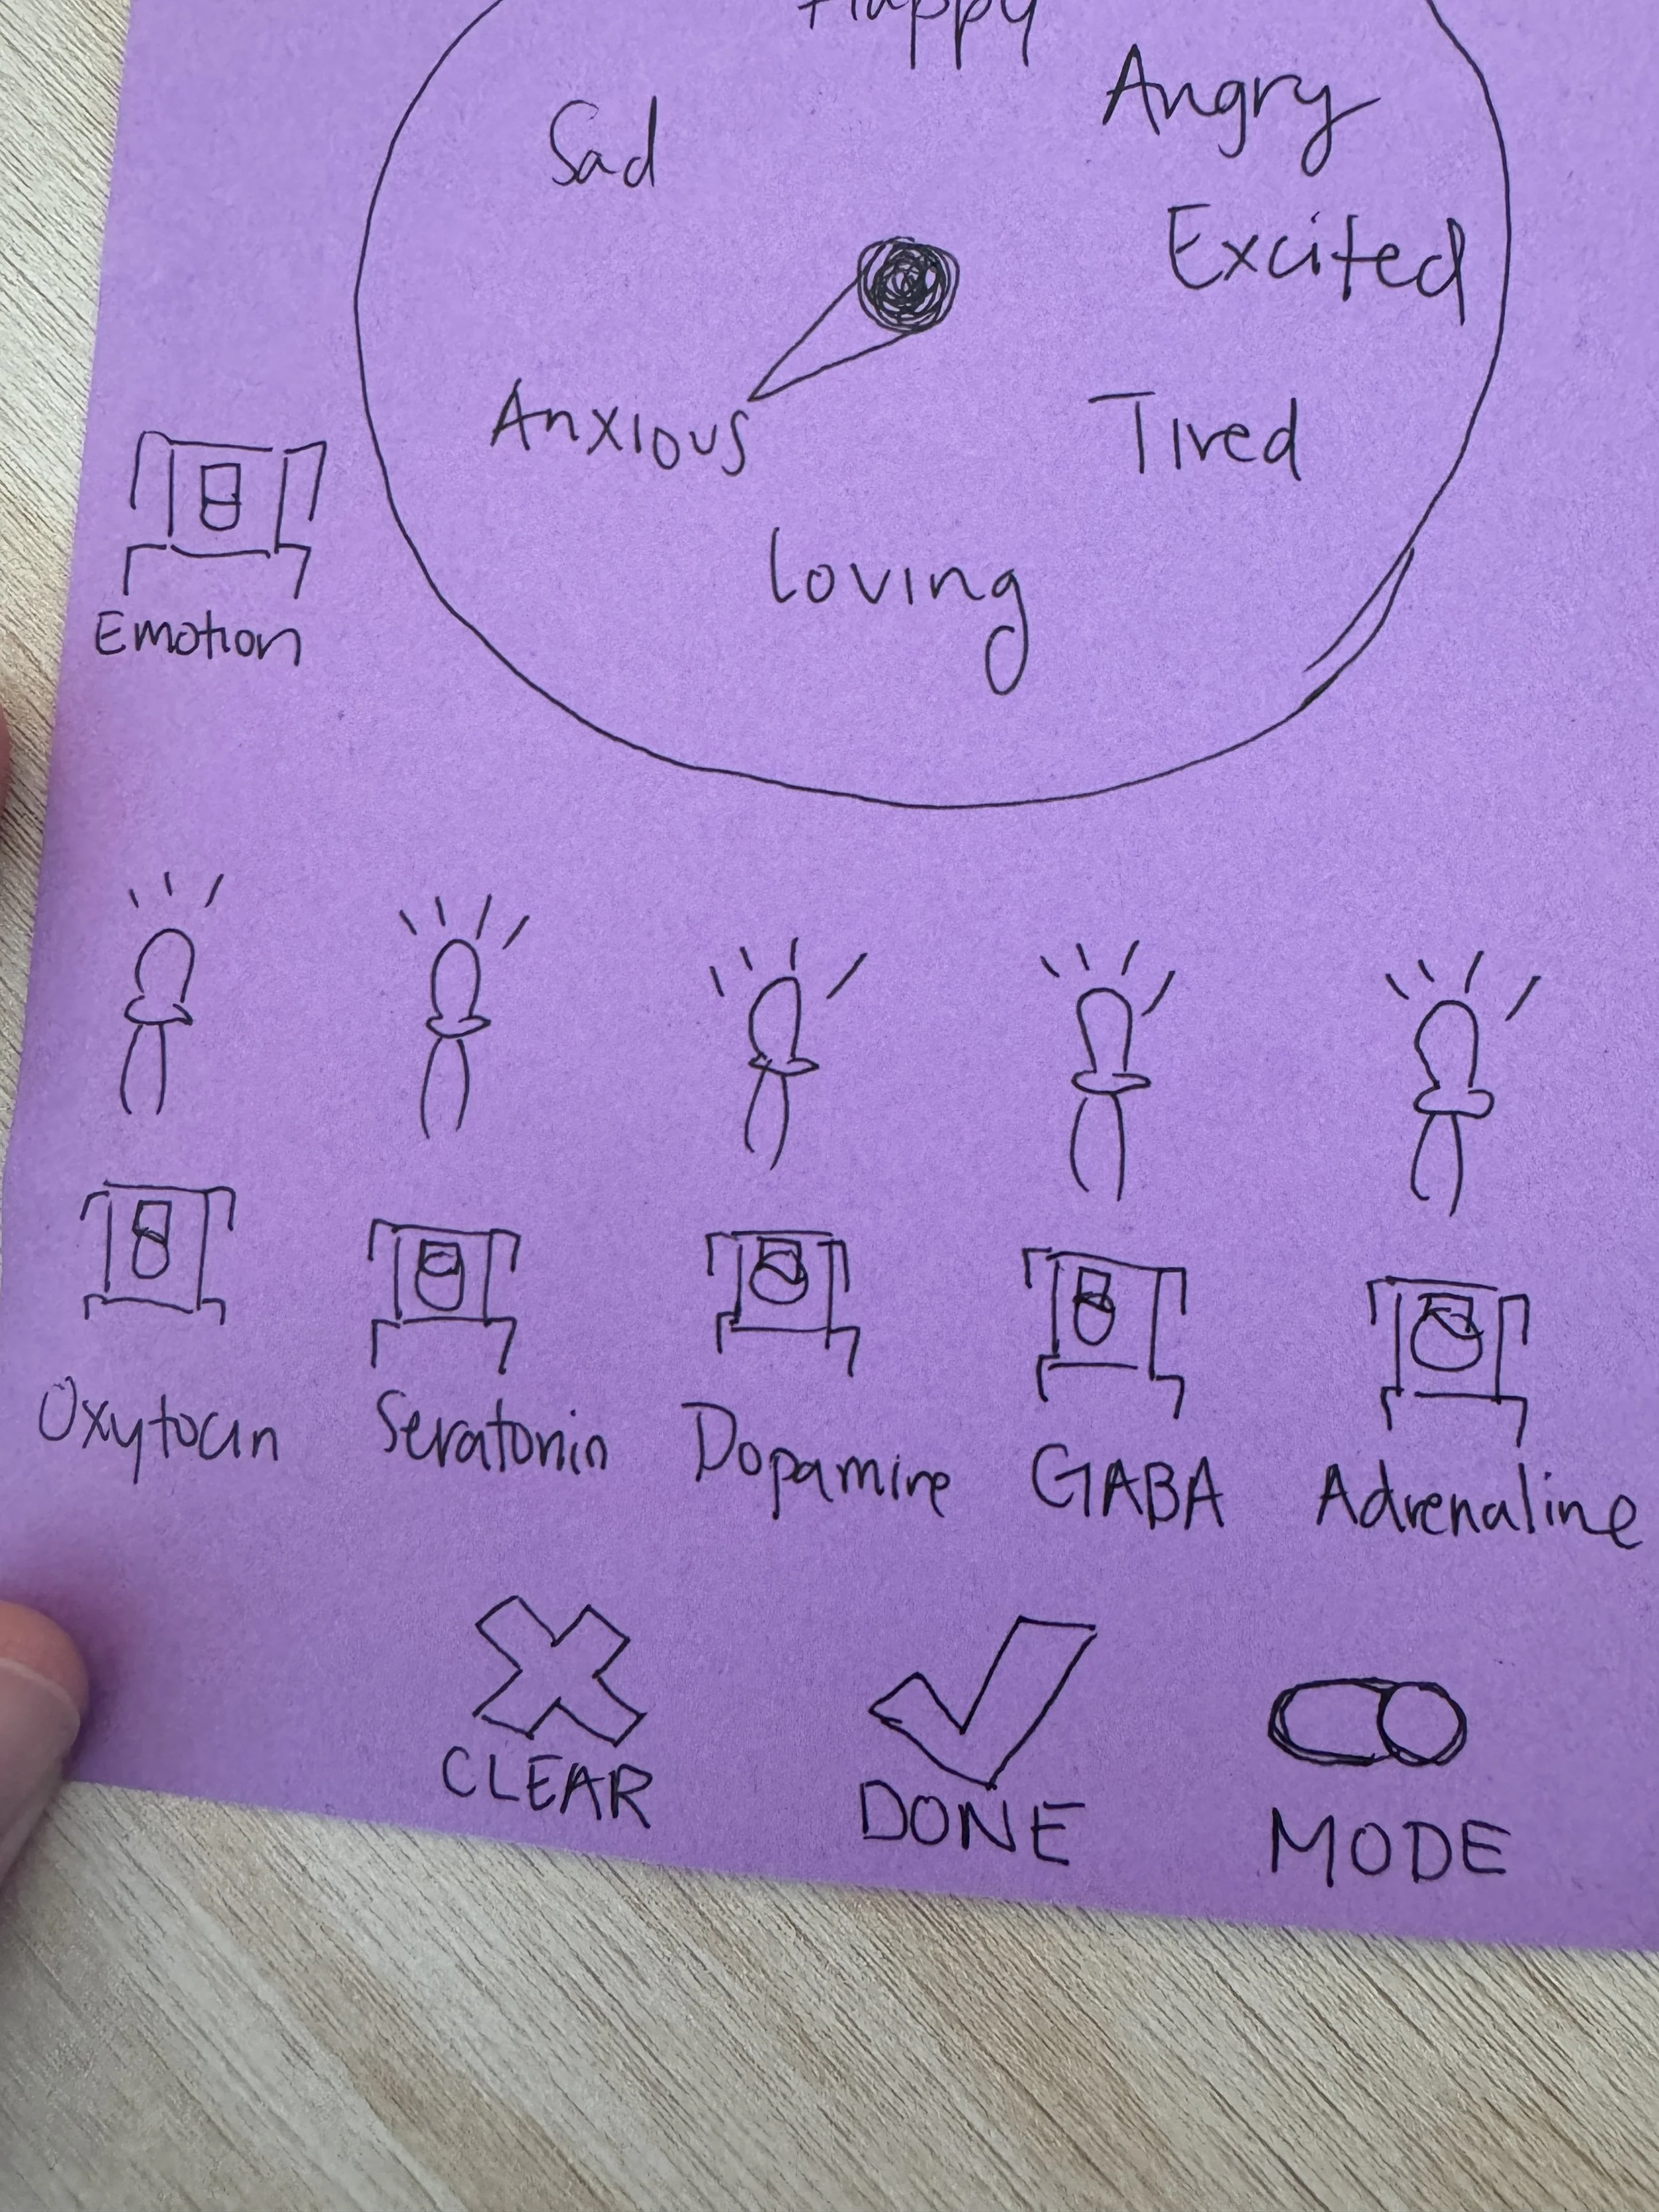 Happy
Sad
Angry
Excited
Anxious
Tired
Loving
Emotion
Oxytocin
Seratonin
Dopamine
GABA
Adrenaline
CLEAR
DONE
MODE